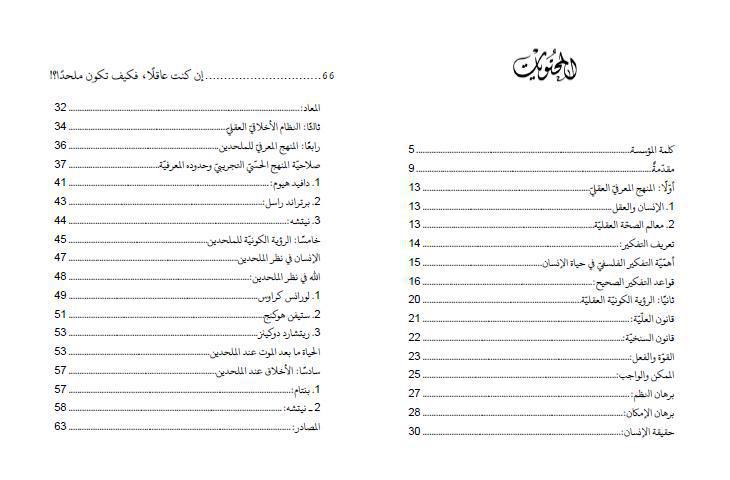 المحتويات
كلمة المؤسسة 5
مقدّمةٌ 9
أوّلًا: المنهج المعرفيّ العقليّ 13
1. الإنسان والعقل 13
2. معالم الصحّة العقليّة 13
تعريف التفكير: 14
أهمّيّة التفكير الفلسفيّ في حياة الإنسان 15
قواعد التفكير الصحيح: 16
ثانيًا: الرؤية الكونيّة العقليّة 20
قانون العلّيّة: 21
قانون السنخيّة: 22
القوّة والفعل: 23
الممكن والواجب: 25
برهان النظم: 27
برهان الإمكان: 28
حقيقة الإنسان: 30
66 إن كنت عاقلًا، فكيف تكون ملحدًا؟!
المعاد: 32
ثالثًا: النظام الأخلاقيّ العقليّ 34
رابعًا: المنهج المعرفيّ للملحدين 36
صلاحيّة المنهج الحسّيّ التجريبيّ وحدوده المعرفيّة 37
1. دافيد هيوم: 41
2. برتراند راسل: 43
3. نيتشه: 44
خامسًا: الرؤية الكونيّة للملحدين 45
الإنسان في نظر الملحدين 47
الله في نظر الملحدين: 48
1. لورانس كراوس 49
2. ستيفن هوكنج 51
3. ريتشارد دوكينز 53
الحياة ما بعد الموت عند الملحدين 53
سادسًا: الأخلاق عند الملحدين 57
1. بنتام: 57
2 ـ نيتشه: 58
المصادر: 63